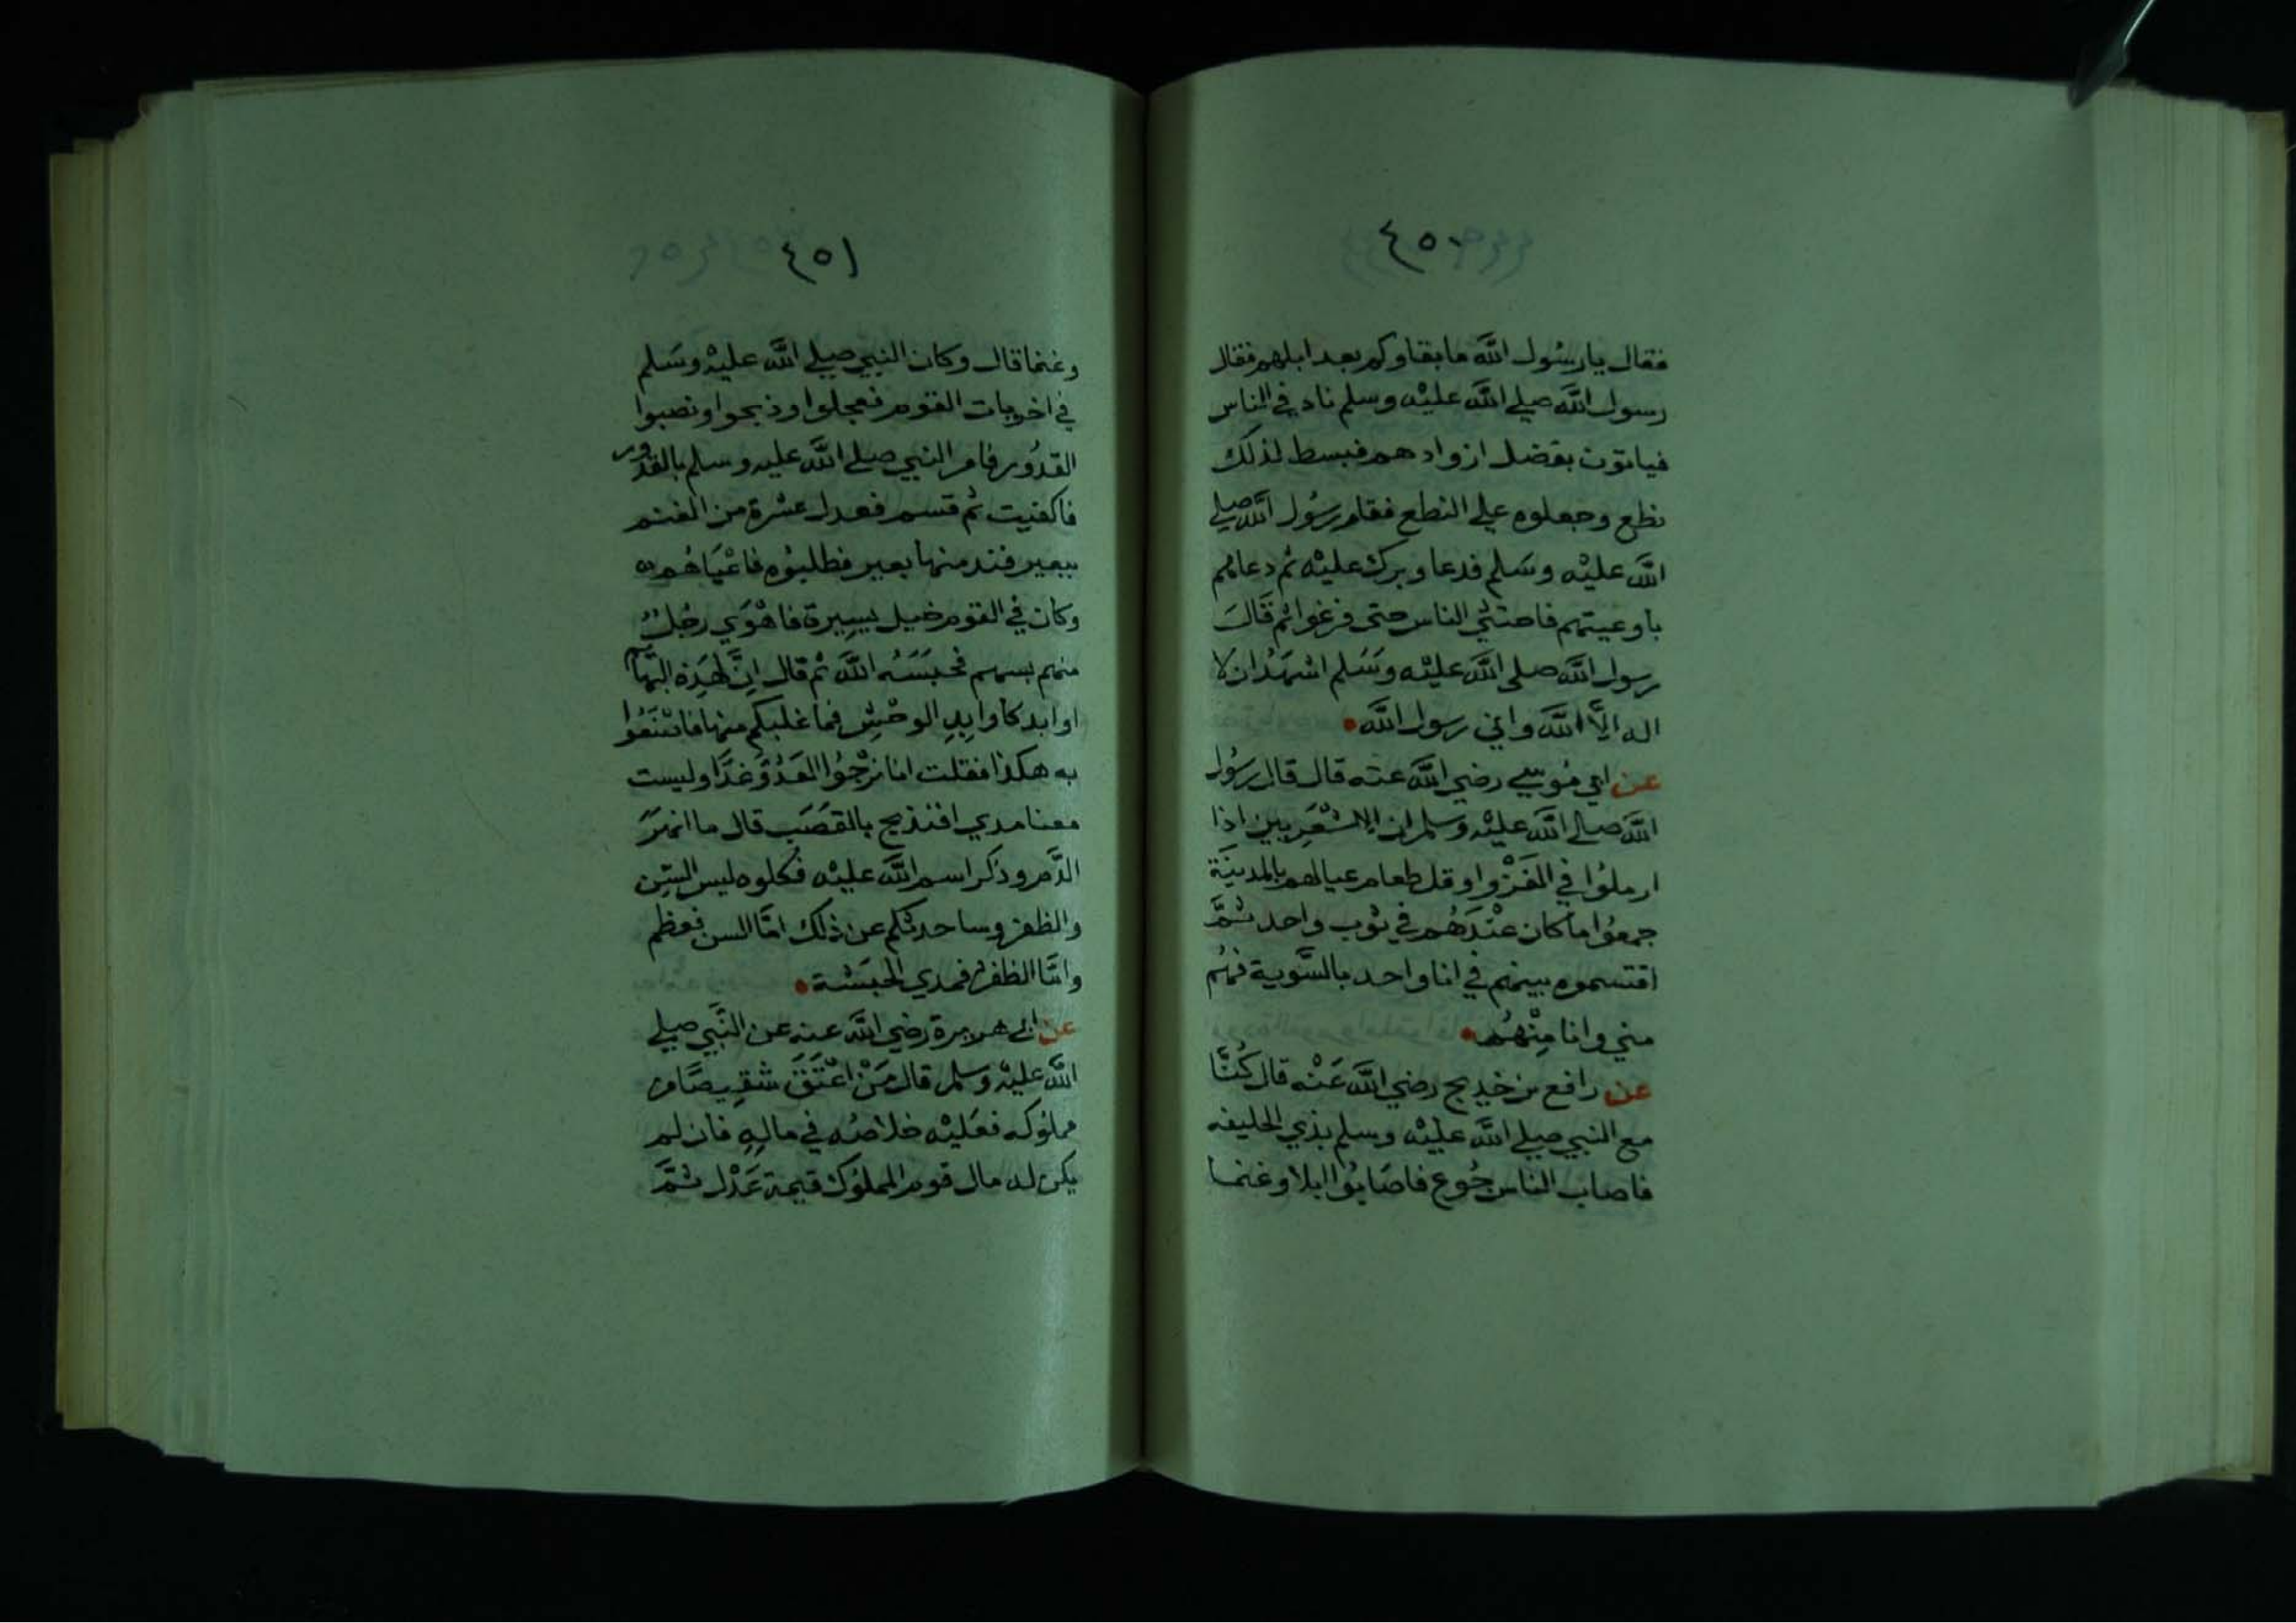 ٤٥٠
فقال يا رسول الله ما بقاوكم بعد ابلهم فقال
رسول الله صلي الله عليه وسلم ناد في الناس
فياتون بفضل ازوادهم فبسط لذلك
نطع وجعلوه علي النطع فقام رسول الله صلي
الله عليه وسلم فدعا وبرك عليه ثم دعاهم
باوعيتهم فاحتثي الناس حتى فرغوا ثم قال
رسول الله صلى الله عليه وسلم اشهد ان لا
اله الا الله واني رسول الله
عن ابي موسي رضي الله عنه قال قال رسول
الله صلي الله عليه وسلم ان الاشعريين اذا
ارملوا في الغزو او قل طعام عيالهم بالمدينة
جمعوا ما كان عندهم في ثوب واحد ثم
اقتسموه بينهم في انا واحد بالسوية فهم
مني وانا منهم
عن رافع بن خديج رضي الله عنه قال كنا
مع النبي صلي الله عليه وسلم بذي الحليفه
فاصاب الناس جوع فاصابوا ابلا وغنما
٤٥١
وغنما قال وكان النبي صلي الله عليه وسلم
في اخريات القوم فعجلوا وذبحوا ونصبوا
القدور فامر النبي صلي الله عليه وسلم بالقدور
فاكفيت ثم قسم فعدل عشرة من الغنم
ببعير فند منها بعير فطلبوه فاعياهم
وكان في القوم خيل يسيرة فاهوي رجل
منهم بسهم فحبسه الله ثم قال ان لهذه البهايم
اوابد كاوابد الوحش فما غلبكم منها فاصنعوا
به هكذا فقلت انا نرجوا العدو غدا وليست
معنا مدي افنذبح بالقصب قال ما انهر
الدم وذكر اسم الله عليه فكلوه ليس السن
والظفر وساحدثكم عن ذلك اما السن فعظم
واما الظفر فمدي الحبشة
عن ابي هريرة رضي الله عنه عن النبي صلي
الله عليه وسلم قال من اعتق شقيصا من
مملوكه فعليه خلاصه في ماله فان لم
يكن له مال قوم المملوك قيمة عدل ثم